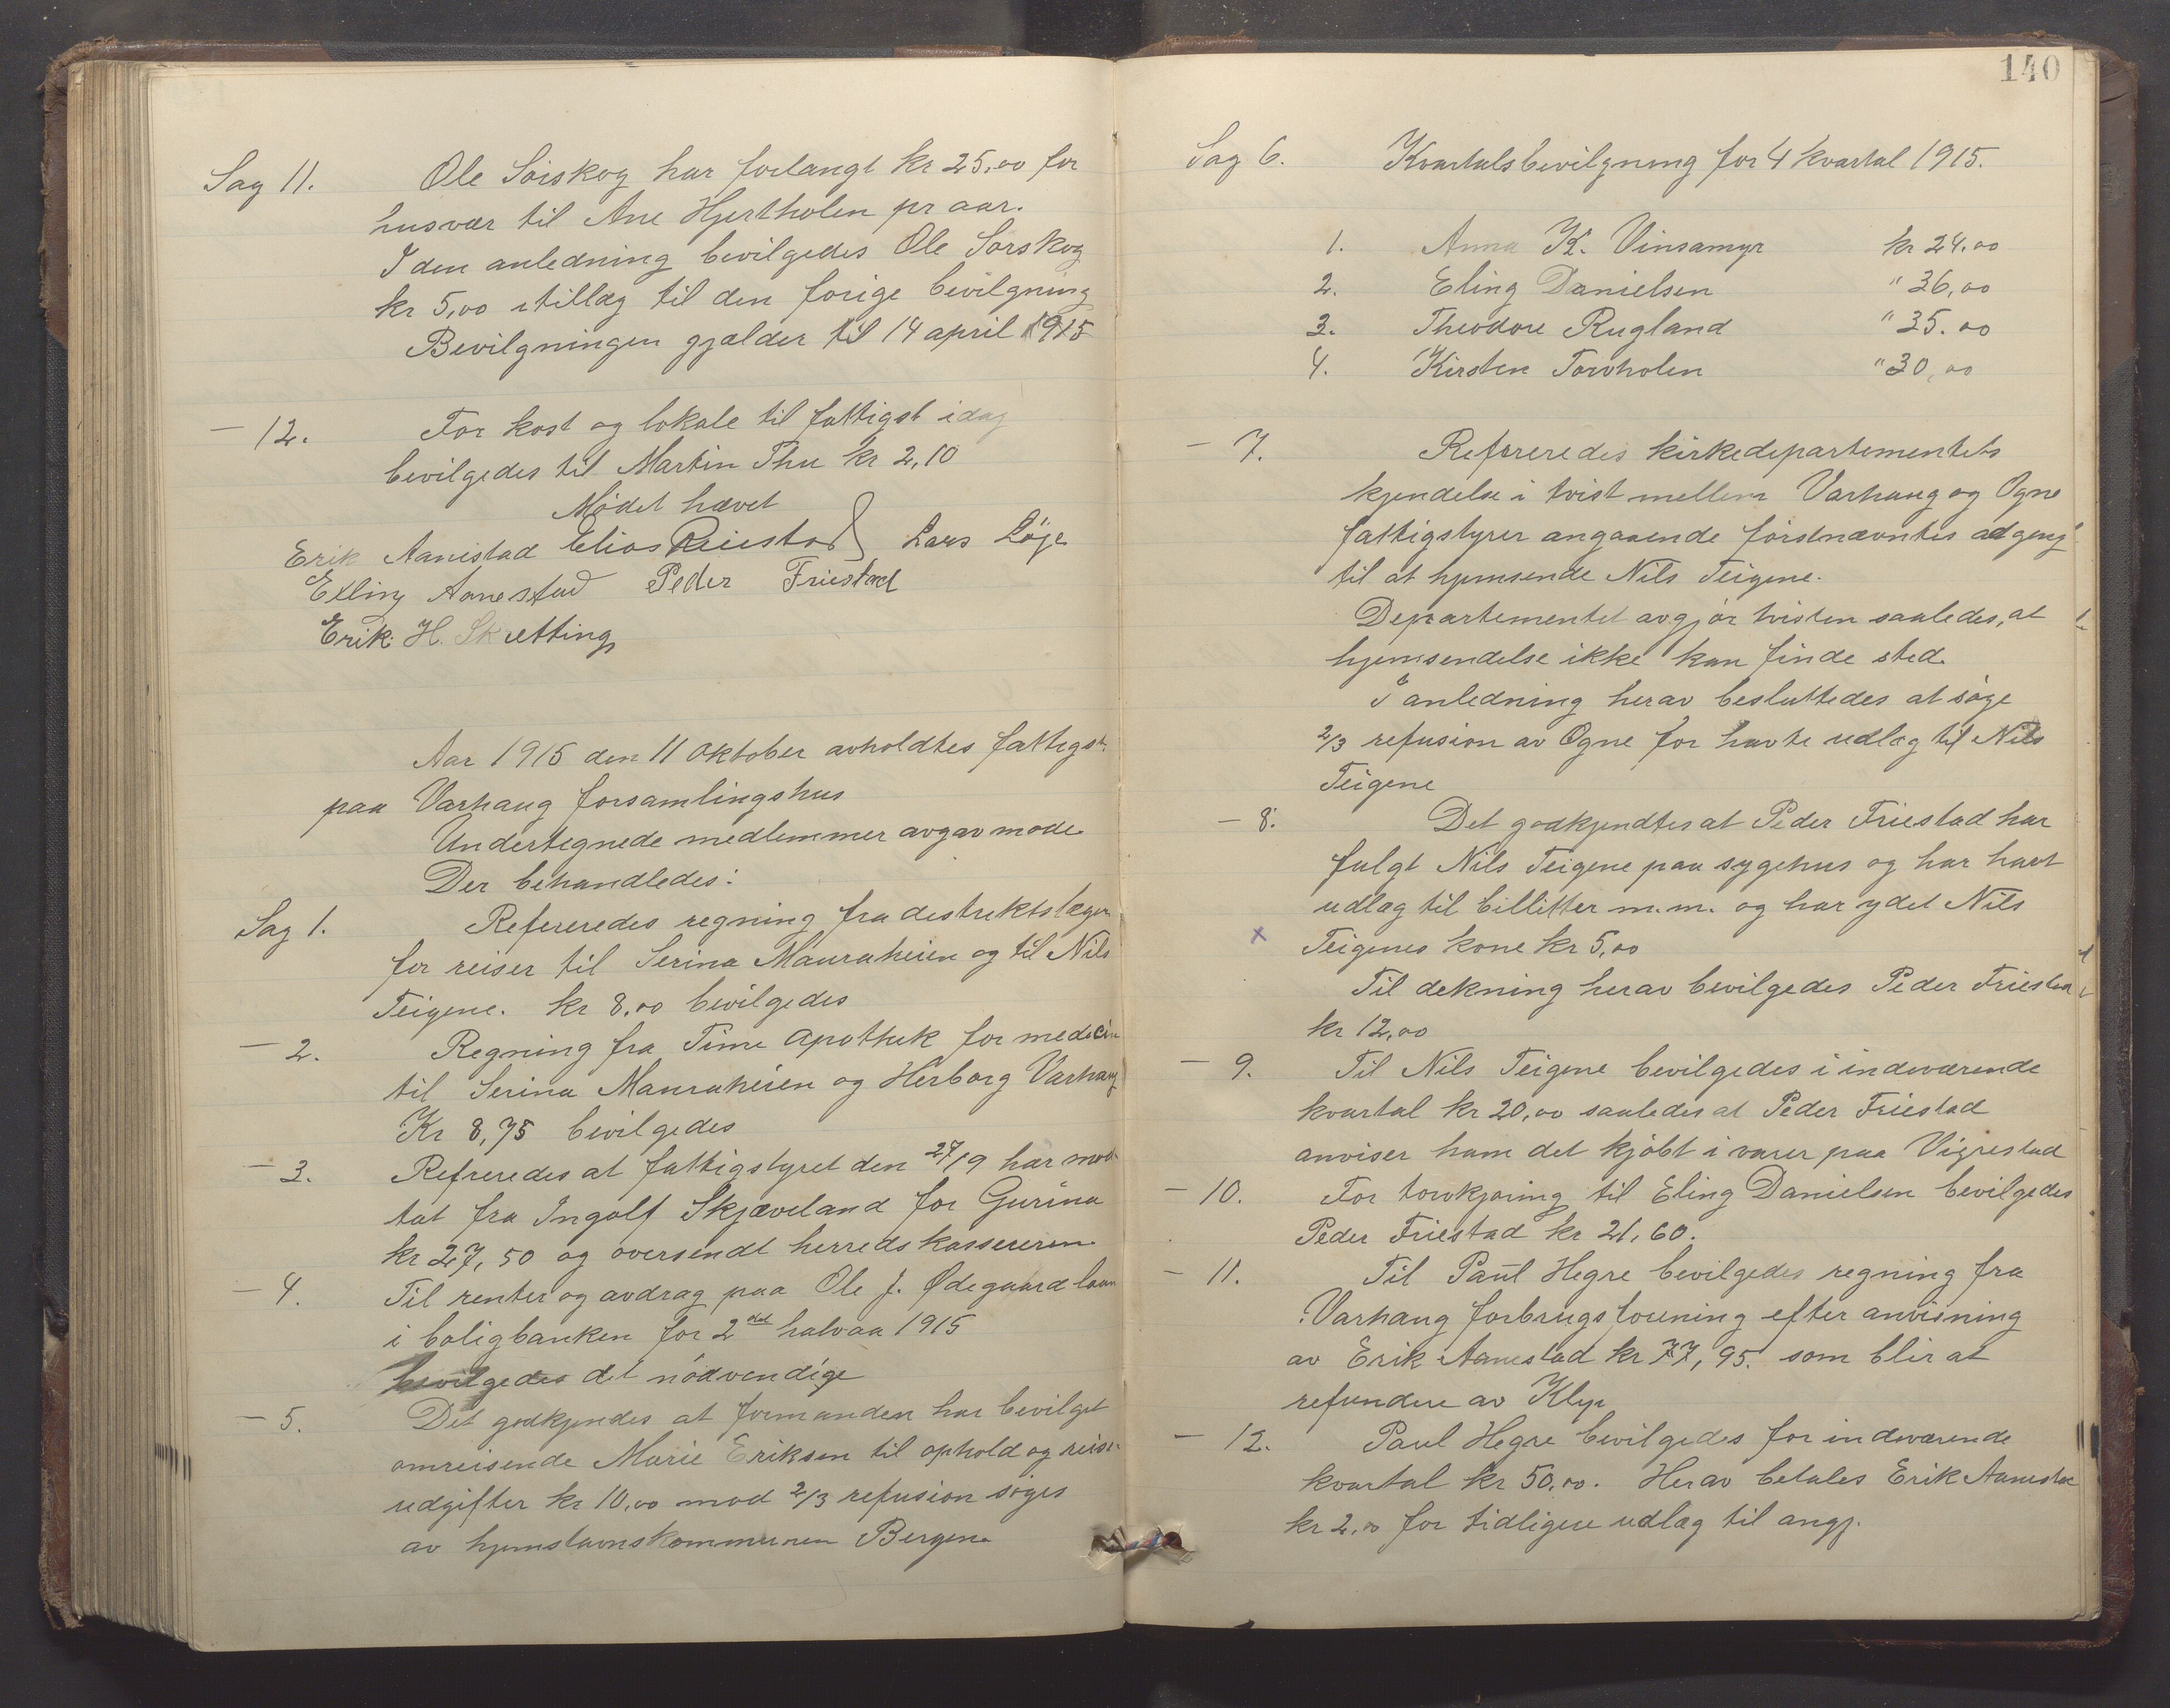 Sag 11. Ole Sörskog har forlangt kr 25,00 for
husvær til Ane Hjertholen pr aar.
I den anledning bevilgedes Ole Sörskog
kr 5,00 i tillæg til den forige bevilgning
Bevilgningen gjælder til 14 april 1915
— 12. For kost og lokale til fattigst idag
bevilgedes til Martin Thu kr 2,10
Mödet hævet
Erik Aanestad Elias Reiestad Lars Löge
Elling Aanestad Peder Friestad
Erik H. Skretting
Aar 1915 den 11 Oktober avholdtes fattigst.
paa Varhaug forsamlingshus
Undertegnede medlemmer avgav möde.
Der behandledes:
Sag 1. Refereredes regning fra destriktslægen
for reiser til Serina Mauraheien og til Nils
Teigene. kr 8,00 bevilgedes
— 2. Regning fra Time apothek for medicin
til Serina Mauraheien og Herborg Varhaug
Kr 8,75 bevilgedes
— 3. Refreredes at fattigstyret den 27/9 har mod
tat fra Ingolf Skjæveland for Gurina
kr 27,50 og oversendt herredskassereren
— 4. Til renter og avdrag paa Ole J. Ødegaard laan
i boligbanken for 2det halvaa 1915
bevilgedes det nödvendige
— 5. Det godkjendes at formanden har bevilget
omreisende Marie Eriksen til ophold og reise
udgifter kr 10,00 mod 2/3 refusion söges
av hjemstavnskommunen Bergen.
140
Sag 6. Kvartalsbevilgning for 4 kvartal 1915.
1. Anna K. Vinsamyr kr 24.00
2. Eling Danielsen " 36,00
3. Theodore Rugland " 35.00
4. Kirsten Torvholen " 30,00
— 7. Refereredes kirkedepartementets
kjendelse i tvist mellem Varhaug og Ogne
fattigstyrer angaaende förstnævntes adgang
til at hjemsende Nils Teigene.
Departementet avgjör tvisten saaledes, at
hjemsendelse ikke kan finde sted.
I anledning herav besluttedes at söge
2/3 refusion av Ogne for havte udlæg til Nils
Teigene
— 8. Det godkjendtes at Peder Friestad har
fulgt Nils Teigene paa sygehus og har havt
udlæg til billetter m.m. og har ydet Nils
x Teigenes kone kr 5,00
Til dekning herav bevilgedes Peder Friestad
kr 12,00
— 9. Til Nils Teigene bevilgedes i indeværende
kvartal kr 20,00 saaledes at Peder Friestad
anviser ham det kjöbt i varer paa Vigrestad
— 10. For torvkjöring til Eling Danielsen bevilgedes
Peder Friestad kr 21,60.
— 11. Til Paul Hegre bevilgedes regning fra
Varhaug forbrugsforening efter anvisning
av Erik Aanestad kr 77,95. som blir at
refundere av Klep
— 12. Paul Hegre bevilgedes for indeværende
kvartal kr 50,00. Herav betales Erik Aanestad
kr 2,00 for tidligere udlæg til angj.